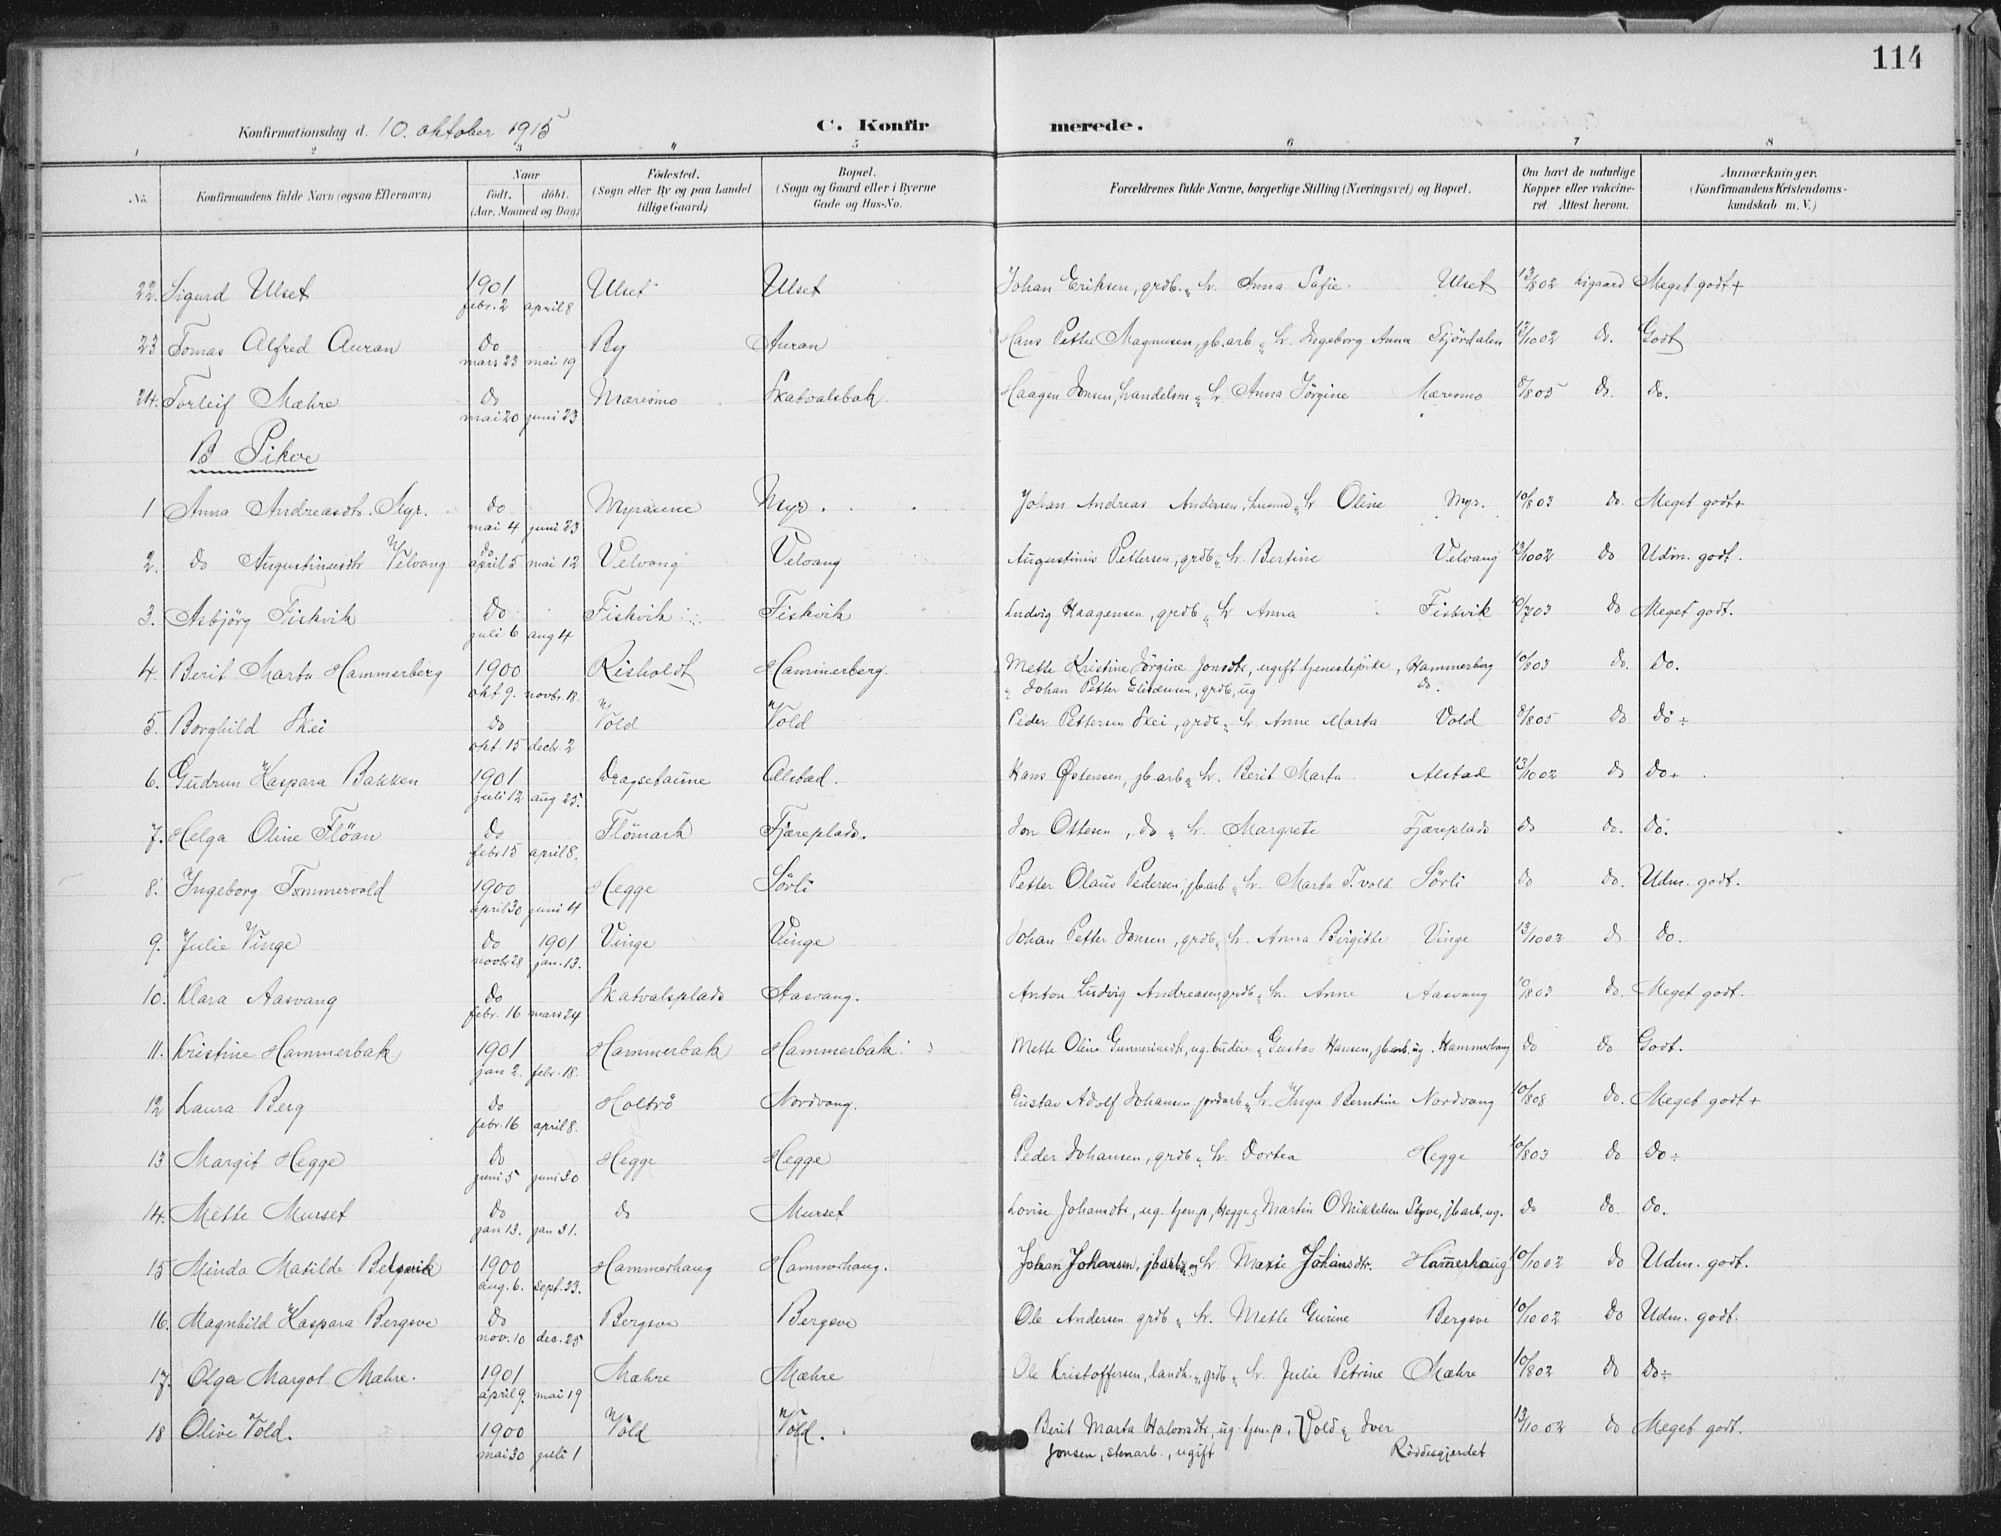 114
Konfirmationsdag d. 10. oktober 1915 C. Konfirmerede.
1 2 3 4 5 6 7 8
No. Konfirmandens fulde Navn (ogsaa Efternavn) Naar født. døbt. (Aar, Maaned og Dag) Fødested. (Sogn eller By og paa Landet tillige Gaard) Bopæl. (Sogn og Gaard eller i Byerne Gade og Hus-No. Forældrenes fulde Navne, borgerlige Stilling (Næringsvei) og Bopæl. Om havt de naturlige Kopper eller vakcineret. Attest herom. Anmærkninger. (Konfirmandens Kristendomskundskab m. V.)
22. Sigurd Ulset 1901 Ulset Ulset Johan Eriksen, grdb. " h. Anna Sofie Ulset 13/8 02 Meget godt +
febr. 2 april 8
23 Tomas Alfred Auran do By Auran Hans Petter Magnussen, jb.arb " h. Ingeborg Anna Stjördalen 13/10 02 do. Godt
mars 23 mai 19
24. Torleif Mæhre do Mæresmo Skatvalsbak Haagen Jonsen, handelsm " h. Anna Jörgine Mæresmo 8/8 05 do. do.
mai 20 juni 23
B Piker
1 Anna Andreasdtr. Myr. do Myraune Myr. Johan Andreas Andersen, husmd " h Oline Myr. 10/8 03 do. Meget godt +
mai 4 juni 23
2. do Augustinusdtr Velvang do Velvang Velvang Augustinus Pettersen, grdb " h. Bertine Velvang 13/10 02 do Udm. godt.
april 5 mai 12
3. Asbjörg Fiskvik do Fiskvik Fiskvik Ludvig Haagensen, grdb " h Anna Fiskvik 10/7 03 do Meget godt.
juli 6 aug 4
4. Berit Marta Hammerberg 1900 Risholdt Hammerberg. Mette Kristine Jörgine Jonsdtr, ugift tjenestepike, Hammerberg 10/8 03 do. do.
okt 9. novbr. 18. " Johan Petter Eliseusen, grdb, ug do.
5. Borghild Skei do Vold Vold Peder Pettersen Skei, grdb " h. Anne Marta Vold 8/8 05 do do ÷
okt. 15 decbr. 2
6. Gudrun Kaspara Bakken 1901 Dragsetaune Alstad. Hans Østensen, jb.arb " h. Berit Marta Alstad 13/10 02 do do +
juli 12 aug 25.
7. Helga Oline Flöan do Flömark Fjæreplads. Jon Ottesen, do " h. Margrete Fjæreplads do do. do.
febr 15 april 8.
8. Ingeborg Tømmervold 1900 Hegge Sörli Petter Olaus Pedersen, jb.arb " h. Marta T.vold Sörli do do. Udm. godt.
april 30 juni 4
9. Julie Vinge do 1901 Vinge Vinge Johan Petter Jonsen, grdb " h. Anna Birgitte Vinge 13/10 02 do do.
novbr 28 jan. 13.
10. Klara Aasvang do Skatvalsplads Aasvang. Anton Ludvig Andreasen, grdb " h. Anne Aasvang 10/8 03 do. Meget godt.
febr. 16 mars 24
11. Kristine Hammerbak 1901 Hammerbak Hammerbak Mette Oline Gunneriusdtr, ug. budeie " Gustav Hansen, jb.arb. ug. Hammerhaug do do Godt.
jan 2. febr. 18.
12 Laura Berg do Holtrö Nordvang. Gustav Adolf Johansen jordarb " h. Inga Berntine Nordvang 10/8 08 do. Meget godt +
febr. 16 april 8.
13 Margit Hegge do Hegge Hegge Peder Johansen, grdb " h. Dortea Hegge 10/8 03 do do ÷
juni 5 juni 30
14. Mette Murset do do Murset Lovise Johansdtr, ug. tjen.p, Hegge " Martin O Mikkelsen Styve, jb.arb. ug. do do do.
jan 13. jan 31.
15 Minda Matilde Belgvik 1900 Hammerhaug Hammerhaug. Johan Johansen, jb.arb. og h. Maxie Johansdtr. Hammerhaug 10/10 02 do Udm. godt.
aug. 6. sept. 23.
16. Magnhild Kaspara Bergsve do Bergsve Bergsve Ole Andersen grdb " h. Mette Gurine Bergsve 10/10 02 do Udm. godt.
nov. 10 dec. 25
17. Olga Margot Mæhre. 1901 Mæhre Mæhre Ole Kristoffersen, landh. " grdb " h. Julie Petrine Mæhre 10/8 02 do do ÷
april 9. mai 19
18 Olive Vold. 1900 Vold Vold. Berit Marta Halvorsdtr, ug. tjen.p, Vold " Iver 13/10 02 do Meget godt.
mai 30 juli 1 Jonsen, stenarb., ugift Röddesgjerdet